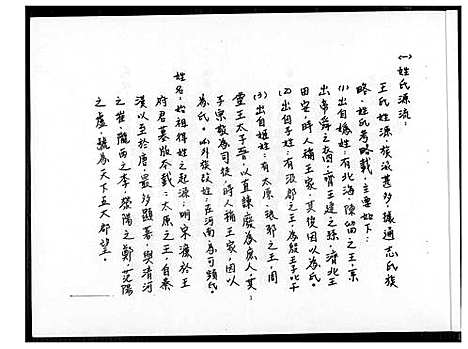 (一) 姓氏源流:
王氏姓源族派甚多,據通志氏族
略、姓氏考略載,主要如下:
(1)出自媯姓:有北海、陳留之王,系
出帝舜之後,齊王建之孫,濟北王
田安,時人稱王家,其後因以為氏。
(2)出自子姓:有汲郡之王為殷王子比干
(3)出自姬姓:有太原、琅邪之王,周
靈王太子晉,以直諫廢為庶人,其
子宗敬為司徒,時人稱王家,因以
為氏。此外族改姓,在河南為可頻氏。
姓名,始祖得姓之起源,明宋濂於王
府君墓版本載:太原之王,自秦
漢以至於唐,最多顯著,與清河
之崔,隴西之李,滎陽之鄭,范陽
之盧,號為天下五大郡望。